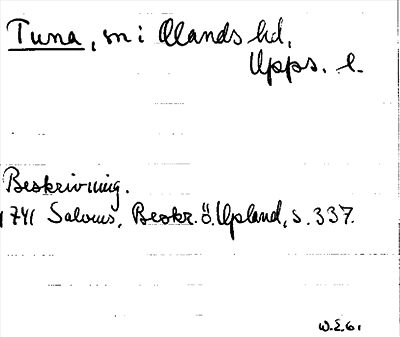 Tuna, sn i Olands hd,
Upps. l.
Beskrivning.
1741 Salvius, Beskr. ö. Upland, s. 337.
W.E.61